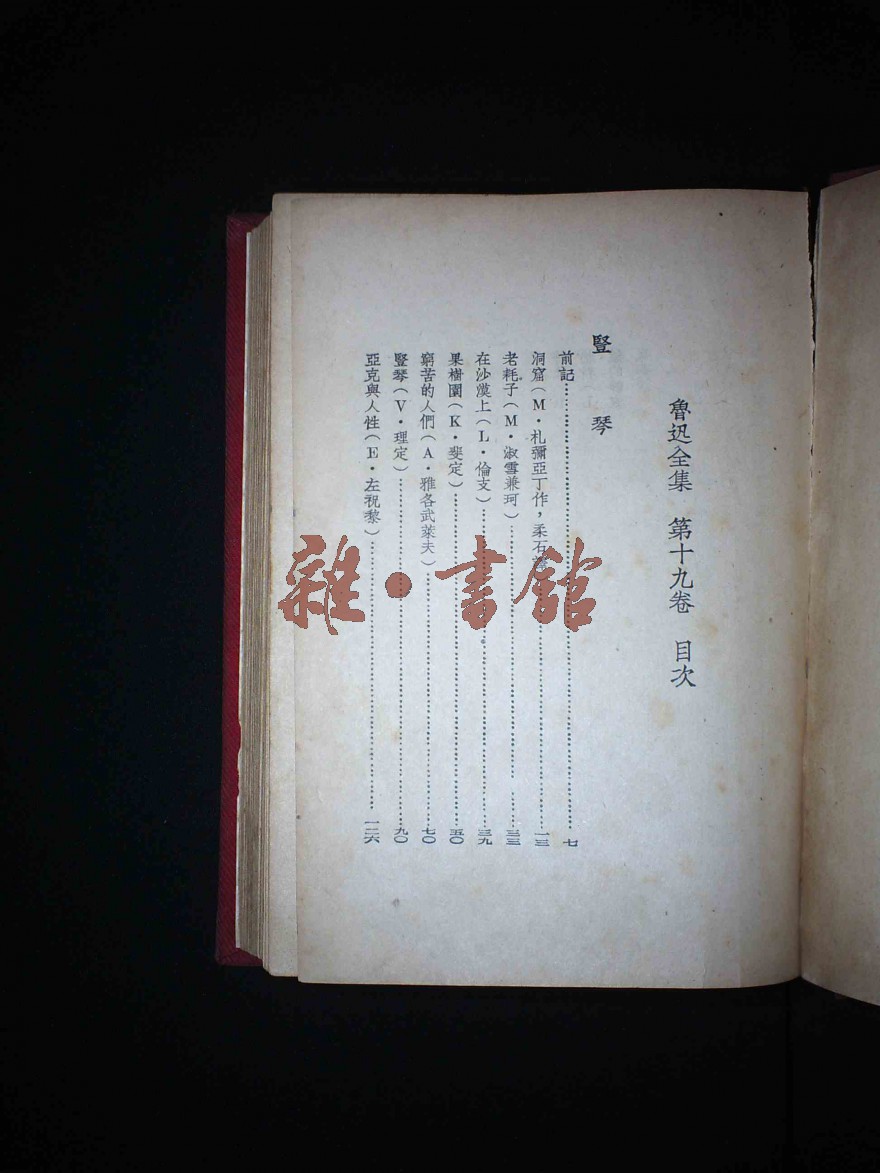 魯迅全集 第十九卷 目次
豎琴
前記……七
洞窟(M·札彌亞丁作,柔石譯)……一三
老耗子(M·淑雪兼珂)……三三
在沙漠上(L·倫支)……三九
果樹園(K·斐定)……五〇
窮苦的人們(A·雅各武萊夫)……七〇
豎琴(V·理定)……九〇
亞克與人性(E·左祝黎)……一二六
雜·書館